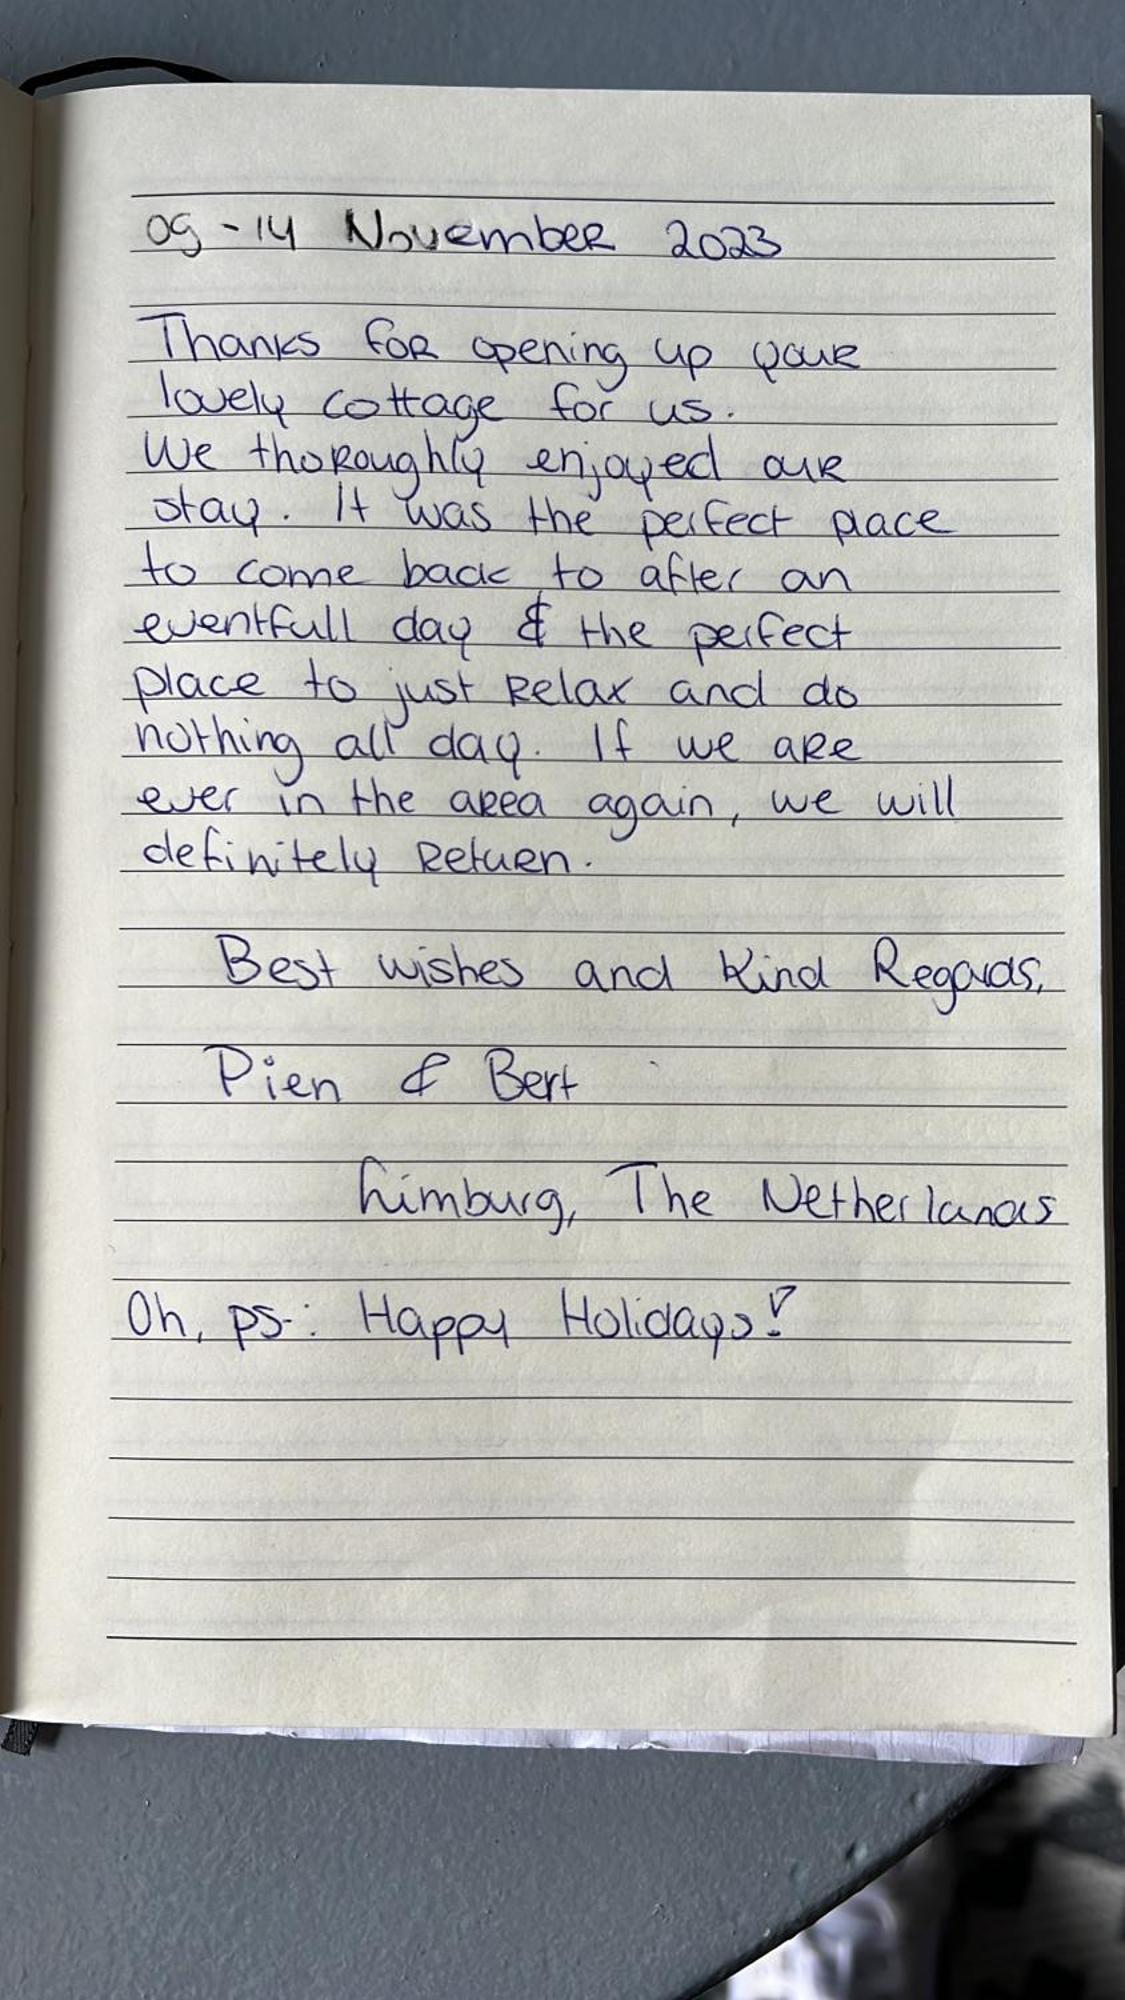 09 - 14 November 2023
Thanks for opening up your
lovely cottage for us.
We thoroughly enjoyed our
stay. It was the perfect place
to come back to after an
eventfull day & the perfect
place to just relax and do
nothing all day. If we are
ever in the area again, we will
definitely return.
Best wishes and kind Regards,
Pien & Bert
Limburg, The Netherlands
Oh, ps.: Happy Holidays!